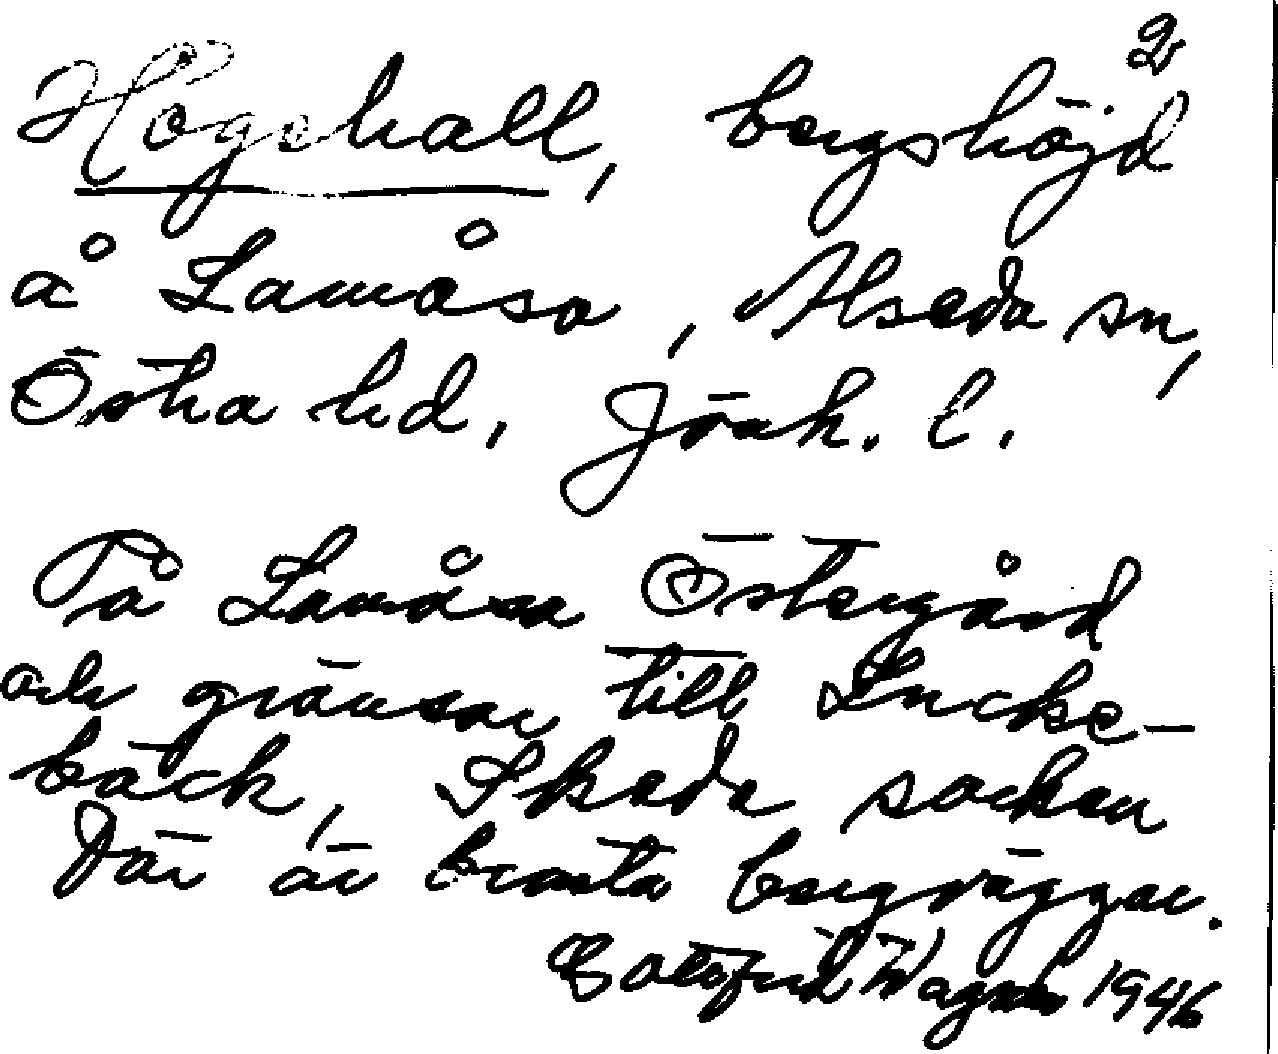 2
Högshall, bergshöjd
å Lamåsa, Alseda sn,
Östra hd, Jönk. l.
På Lamåsa Östergård
och gränsar till Lncke-
bäck, Skede socken
Där är branta bergväggar.
Gotfrid Wagnér 1946